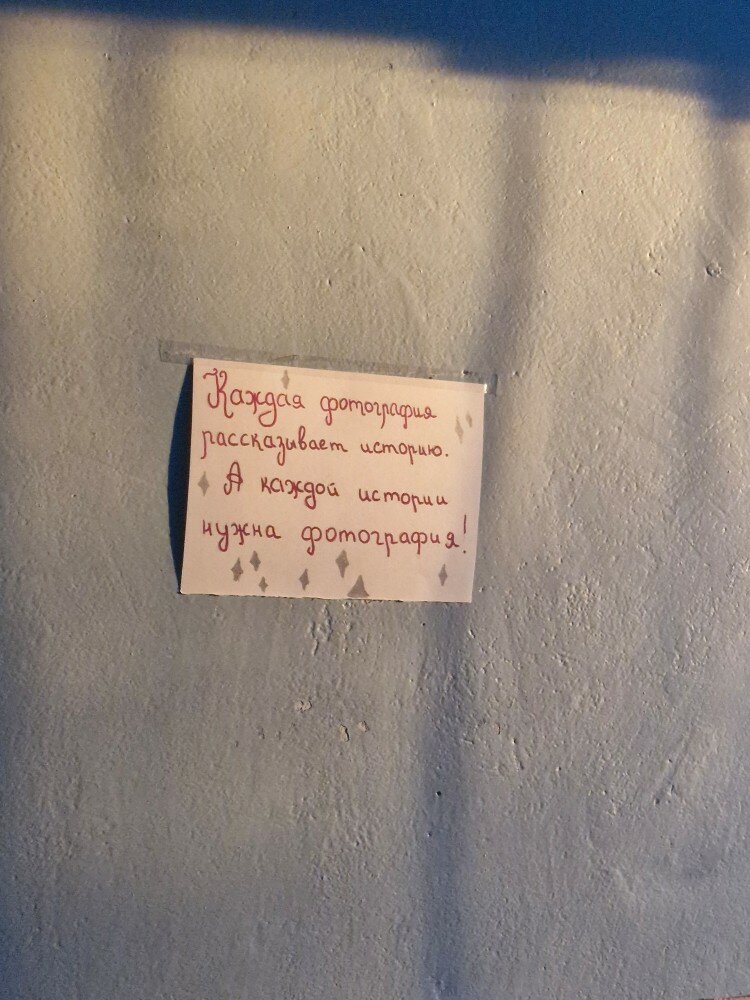 Каждая фотография
рассказывает историю.
А каждой истории
нужна фотография!